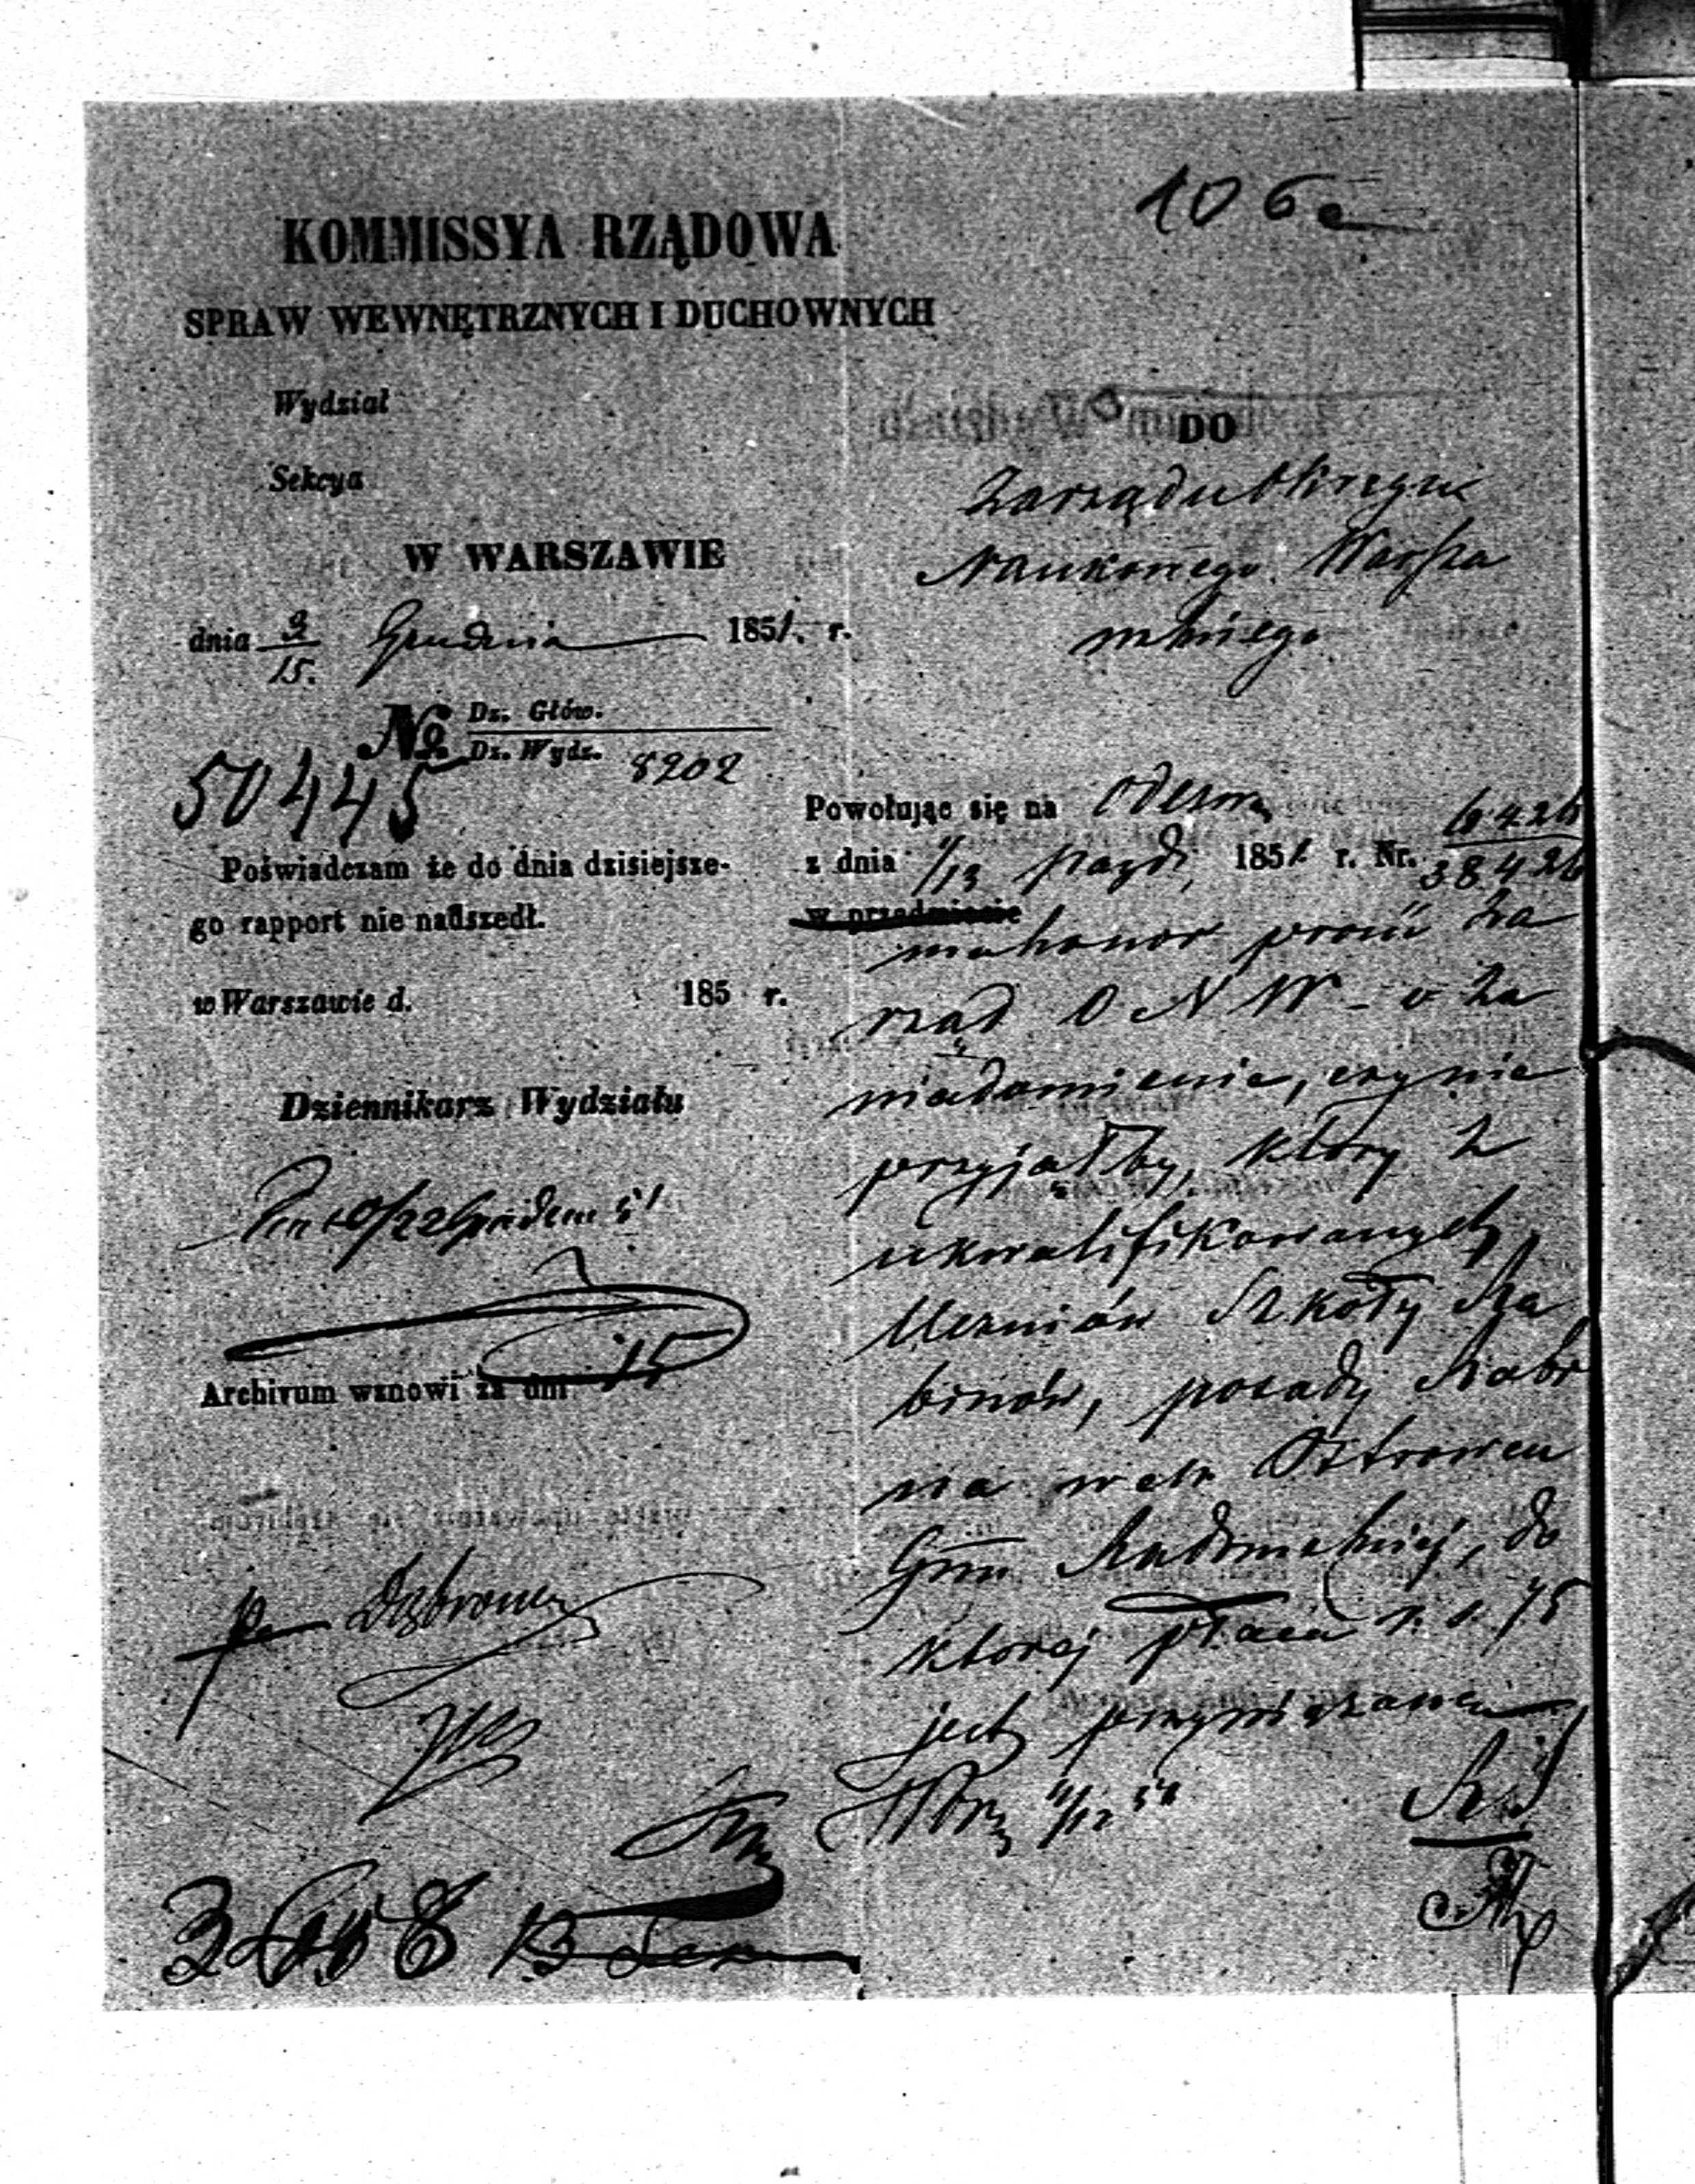 106a
KOMMISSYA RZĄDOWA
SPRAW WEWNĘTRZNYCH I DUCHOWNYCH
Wydział
Sekcya
W WARSZAWIE
dnia 3/15. Grudnia 1851. r.
No Dz. Głów.
Dz. Wydz. 8202
50445
Poświadczam że do dnia dzisiejsze-
go rapport nie nadszedł.
w Warszawie d. 185 r.
Dziennikarz Wydziału
Archivum wznowi za dni 15
DO
Zarządu Okręgu
Naukowego Warsza
wskiego
Powołując się na odezwę
z dnia 1/13 Pazdz. 1851 r. Nr. 6426/38426
w przedmiocie
ma honor prosić Za
rząd O N W - o za
wiadomienie, czy nie
przyjąłby, który z
ukwalifikowanych
Uczniów Szkoły Ra
binów, posady Rabi
na w Ostrowcu
Gub Radomskiej, do
ktorej płaca r. s. 75
jest przywiązana